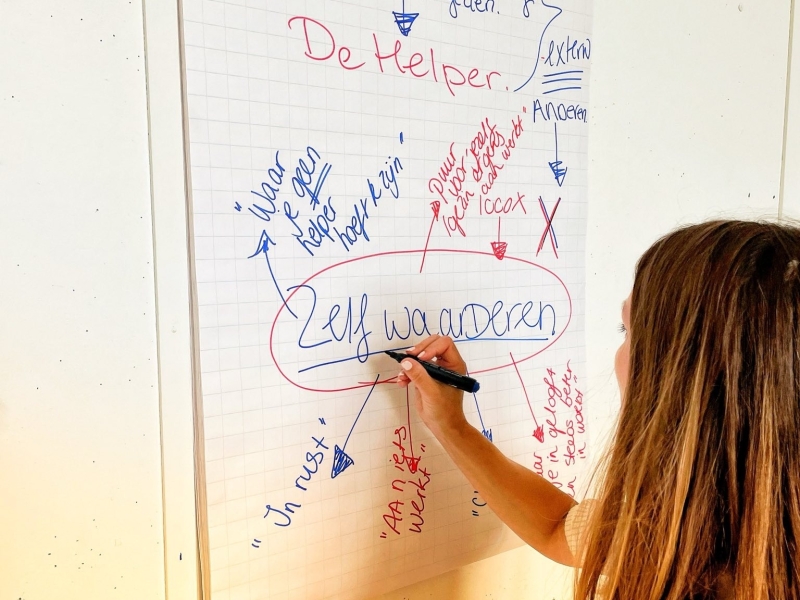 De Helper.
extern
Anderen
"Waar
je geen
helper
hoeft te zijn"
Puur
voor jezelf
ergens
aan werkt"
1000x
X
Zelf waarderen
"In rust"
"AAn iets
werkt"
je in gelooft
steeds beter
in wordt"